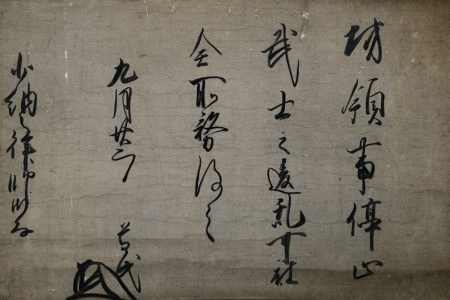 坊領事停止
武士之違乱可被
全所務候
九月廿 尊氏
少納言律師御房